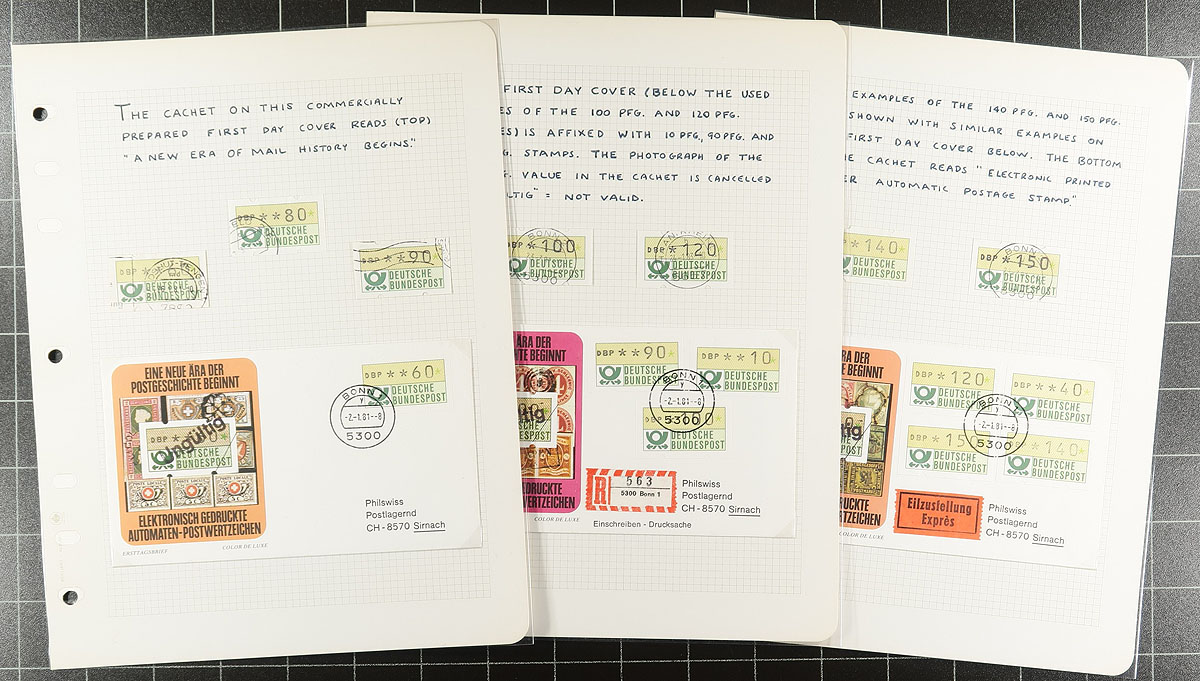 THE CACHET ON THIS COMMERCIALLY
PREPARED FIRST DAY COVER READS (TOP)
"A NEW ERA OF MAIL HISTORY BEGINS."
DBP **80
DEUTSCHE
BUNDESPOST
DBP
DEUTSCHE
BUNDESPOST
**90
DEUTSCHE
BUNDESPOST
EINE NEUE ÄRA DER
POSTGESCHICHTE BEGINNT
DBP
Ungültig
DEUTSCHE
BUNDESPOST
ELEKTRONISCH GEDRUCKTE
AUTOMATEN-POSTWERTZEICHEN
ERSTTAGSBRIEF
COLOR DE LUXE
DBP **60
DEUTSCHE
BUNDESPOST
BONN 1
-2.-1.81--8
5300
Philswiss
Postlagernd
CH-8570 Sirnach
FIRST DAY COVER (BELOW THE USED
ES OF THE 100 PFG. AND 120 PFG.
ES) IS AFFIXED WITH 10 PFG., 90 PFG. AND
G. STAMPS. THE PHOTOGRAPH OF THE
G. VALUE IN THE CACHET IS CANCELLED
LTIG" = NOT VALID.
*100
DEUTSCHE
BUNDESPOST
BONN
5300
DBP *120
DEUTSCHE
BUNDESPOST
ÄRA DER
HTE BEGINNT
ltig
DEUTSCHE
BUNDESPOST
EDRUCKTE
WERTZEICHEN
COLOR DE LUXE
DBP **90
DEUTSCHE
BUNDESPOST
DBP **10
DEUTSCHE
BUNDESPOST
DEUTSCHE
BUNDESPOST
BONN 1
y
-2.-1.81--8
5300
R
563
5300 Bonn 1
Einschreiben - Drucksache
Philswiss
Postlagernd
CH-8570 Sirnach
EXAMPLES OF THE 140 PFG. AND 150 PFG.
SHOWN WITH SIMILAR EXAMPLES ON
FIRST DAY COVER BELOW. THE BOTTOM
E CACHET READS "ELECTRONIC PRINTED
ER AUTOMATIC POSTAGE STAMP."
DBP *140
DEUTSCHE
BUNDESPOST
BONN
DBP *150
DEUTSCHE
BUNDESPOST
5300
RA DER
TE BEGINNT
tig
DEUTSCHE
BUNDESPOST
DRUCKTE
ERTZEICHEN
COLOR DE LUXE
DBP *120
DEUTSCHE
BUNDESPOST
DBP **40
DEUTSCHE
BUNDESPOST
DBP *15
DEUTSCHE
BUNDESPOST
DBP *140
DEUTSCHE
BUNDESPOST
BONN 1
y
-2.-1.81--8
5300
Eilzustellung
Exprès
Philswiss
Postlagernd
CH-8570 Sirnach